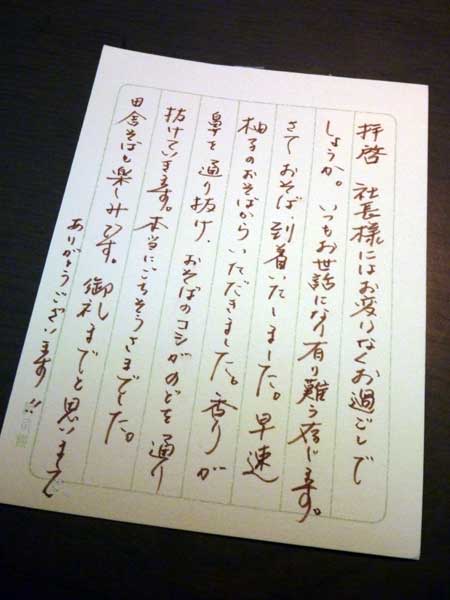 拝啓 社長様にはお変りなくお過ごしで
しょうか。いつもお世話になり有り難う存じます。
さておそば、到着いたしました。早速
柚子のおそばからいただきました。香りが
鼻を通り抜け、おそばのコシがのどを通り
抜けていきます。本当にごちそうさまでした。
田舎そばも楽しみです。御礼までと思いまして
ありがとうございます!!